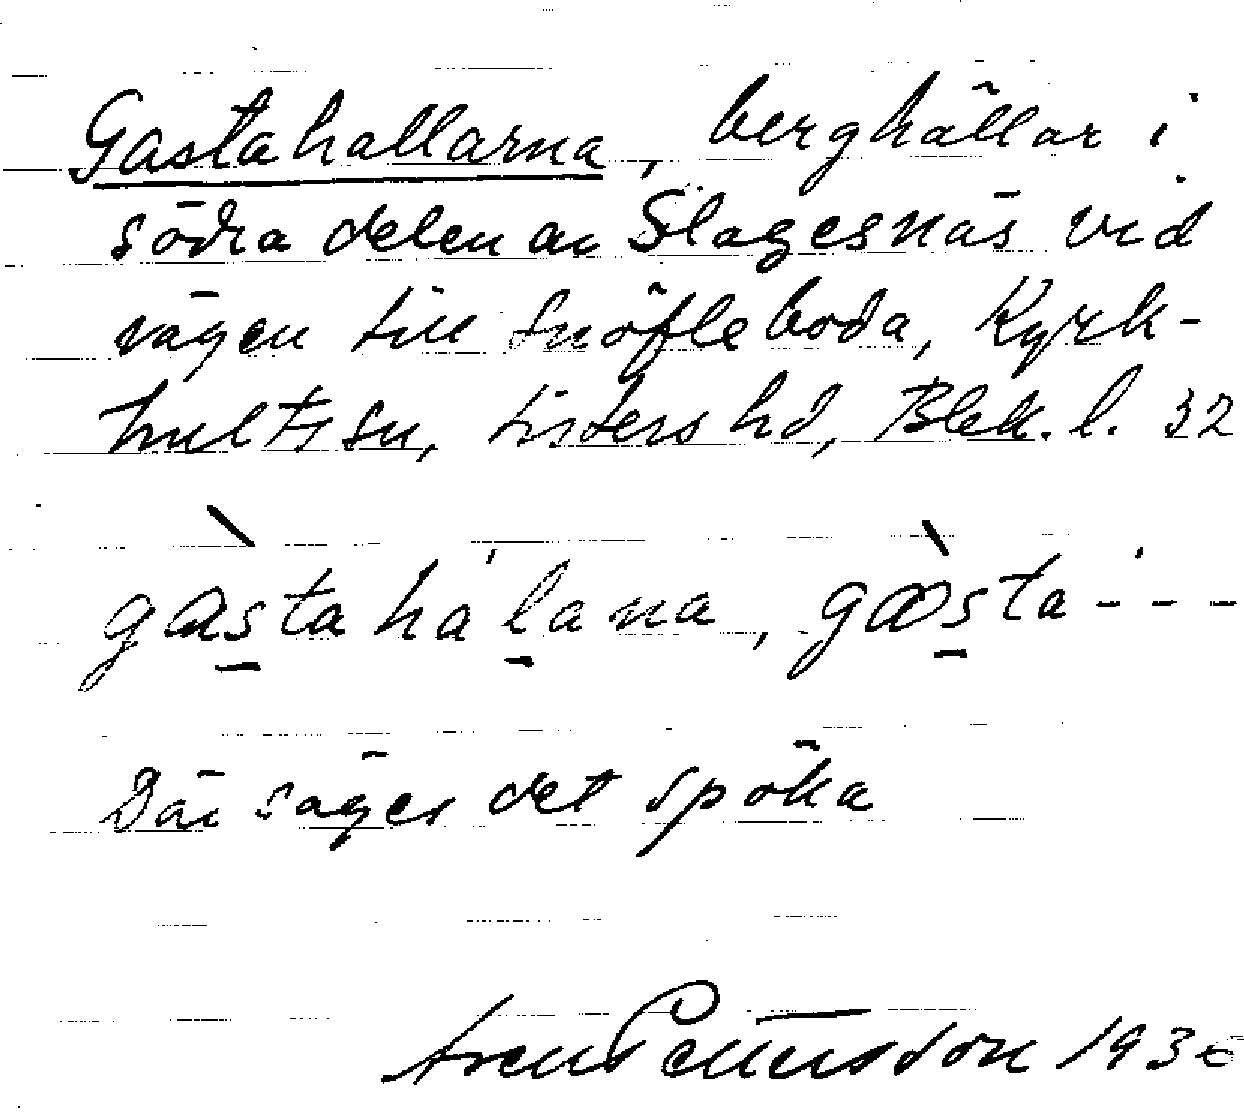 Gastahallarna, berghällar i
södra delen av Slagesnäs vid
vägen till Snöfleboda, Kyrk-
hults sn, Listers hd, Blek. l. 32
gastahálana, gæsta---
Där säges det spöka
Sven Pettersson 1936